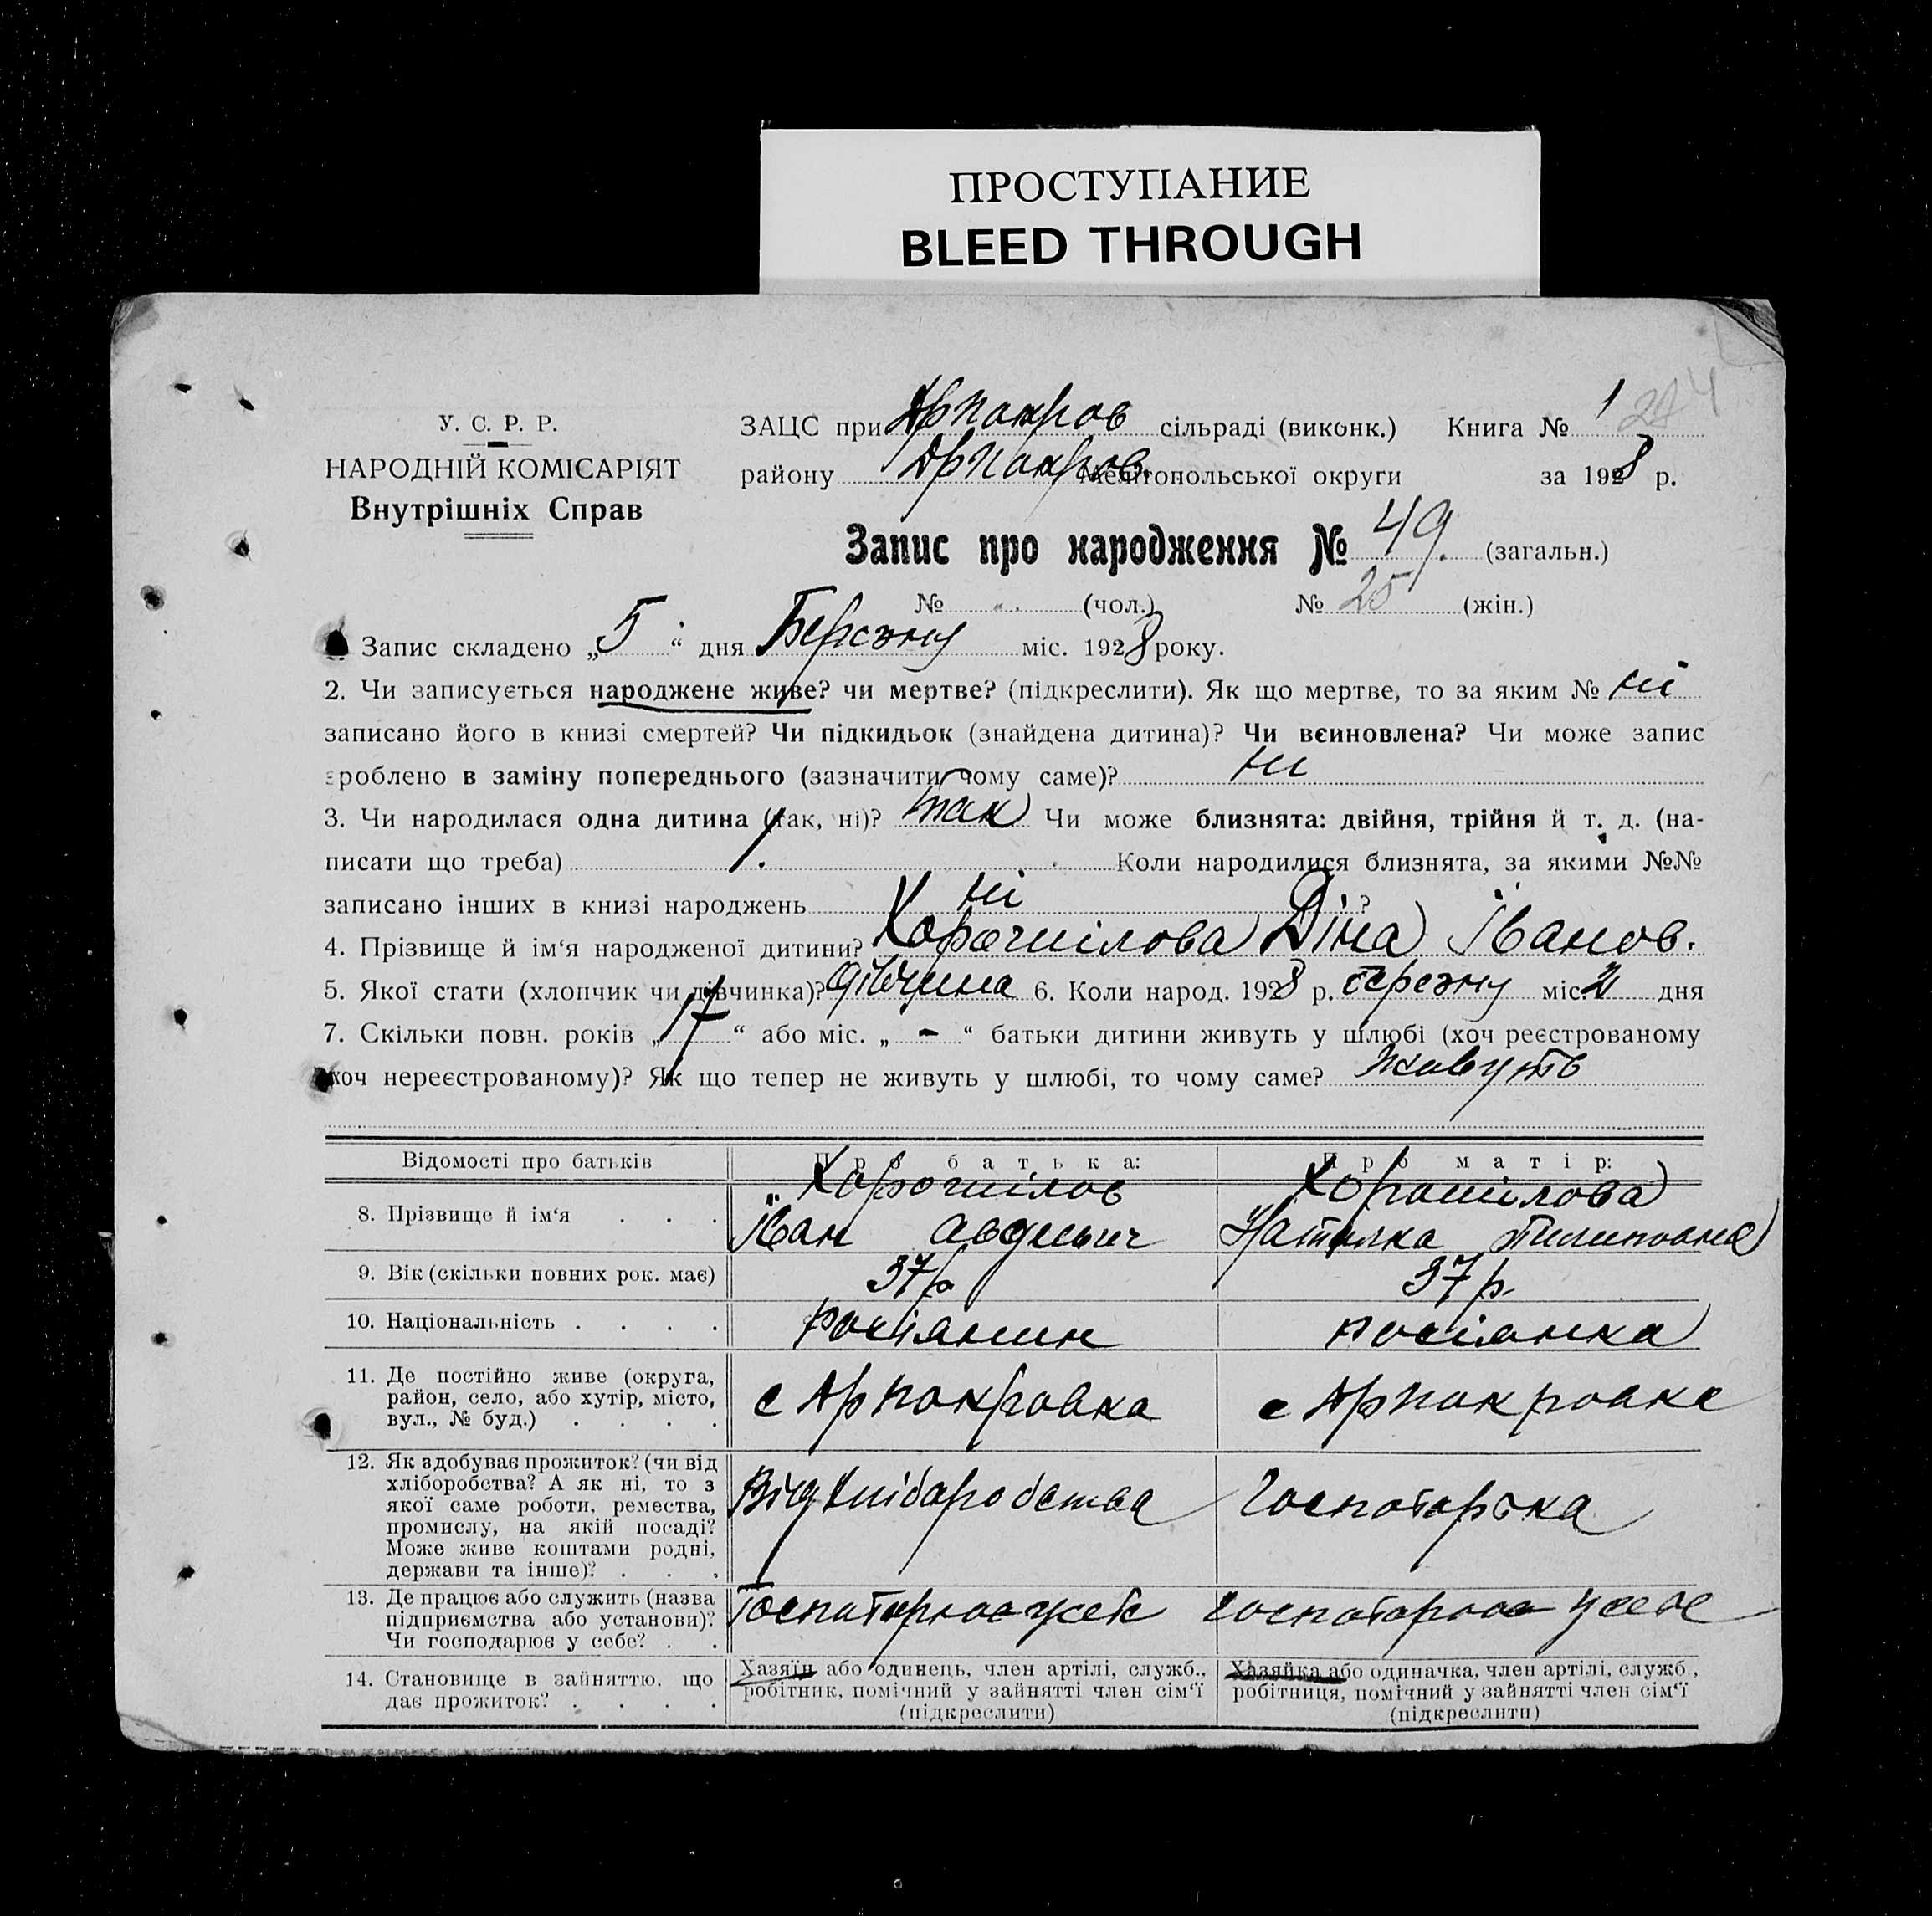 ПРОСТУПАНИЕ
BLEED THROUGH
У. С. Р. Р.
НАРОДНІЙ КОМІСАРІЯТ
Внутрішніх Справ
ЗАЦС при Арпокров сільраді (виконк.) Книга № 1 244
району Арпокров. Мелітопольської округи за 1928 р.
Запис про народження № 49. (загальн.)
№ „ . (чол.) № 25 (жін.)
Запис складено „5“ дня Березну міс. 1928 року.
2. Чи записується народжене живе? чи мертве? (підкреслити). Як що мертве, то за яким № ні
записано його в книзі смертей? Чи підкидьок (знайдена дитина)? Чи всиновлена? Чи може запис
зроблено в заміну попереднього (зазначити чому саме)? ни
3. Чи народилася одна дитина (так, ні)? так Чи може близнята: двійня, трійня й т. д. (на-
писати що треба) Коли народилися близнята, за якими №№
записано інших в книзі народжень ні ?
4. Прізвище й ім‘я народженої дитини? Хорошілова Діна Іванов.
5. Якої стати (хлопчик чи дівчинка)? дівчина 6. Коли народ. 1928 р. березну міс. 2 дня
7. Скільки повн. років „17“ або міс. „ - “ батьки дитини живуть у шлюбі (хоч реєстрованому
хоч нереєстрованому)? Як що тепер не живуть у шлюбі, то чому саме? живуть
Відомості про батьків Про батька: Про матір:
8. Прізвище й ім‘я . . . Хорошілов Іван Авдеевич Хорошилова Наталка Пилиповна
9. Вік (скільки повних рок. має) 37 р 37 р.
10. Національність . . . . росіянин росіянка
11. Де постійно живе (округа,
район, село, або хутір, місто,
вул., № буд.) . . . .
с Арпокровка с Арпокровка
12. Як здобуває прожиток? (чи від
хліборобства? А як ні, то з
якої саме роботи, ремества,
промислу, на якій посаді?
Може живе коштами родні,
держави та інше)? . . .
Від хліборобства Госпотарька
13. Де працює або служить (назва
підприємства або установи)?
Чи господарює у себе? . .
Госпотарює у себе госпотарює у себе
14. Становище в зайняттю, що
дає прожиток? . . . .
Хазяїн або одинець, член артілі, служб.,
робітник, помічний у зайнятті член сім‘ї
(підкреслити)
Хазяйка або одиначка, член артілі, служб.,
робітниця, помічний у зайнятті член сім‘ї
(підкреслити)